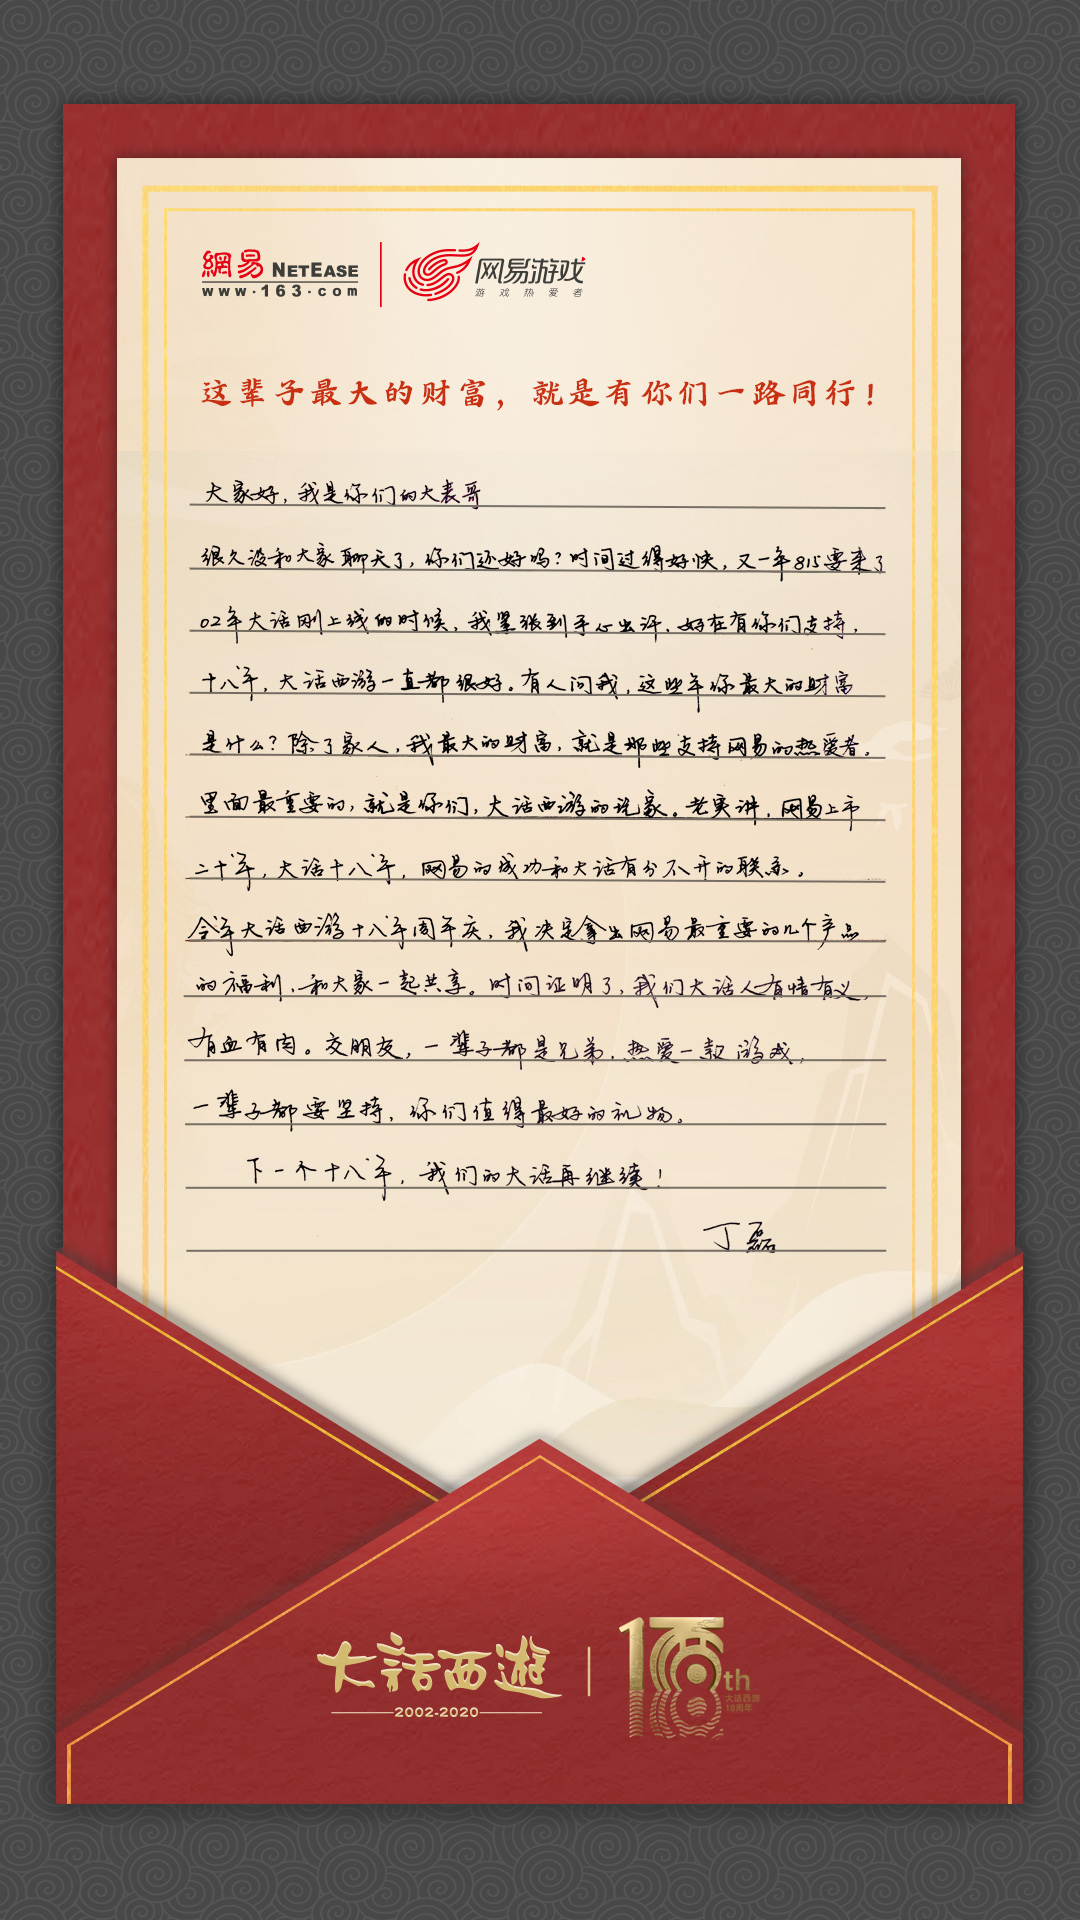 網易 NETEASE
www.163.com
网易游戏
游戏热爱者
这辈子最大的财富，就是有你们一路同行！
大家好，我是你们的大表哥
很久没和大家聊天了，你们还好吗？时间过得好快，又一年815要来了
02年大话刚上线的时候，我紧张到手心出汗，好在有你们支持，
十八年，大话西游一直都很好。有人问我，这些年你最大的财富
是什么？除了家人，我最大的财富，就是那些支持网易的热爱者。
里面最重要的，就是你们，大话西游的玩家。老实讲，网易上市
二十年，大话十八年，网易的成功和大话有分不开的联系。
今年大话西游十八年周年庆，我决定拿出网易最重要的几个产品
的福利，和大家一起共享。时间证明了，我们大话人有情有义，
有血有肉。交朋友，一辈子都是兄弟，热爱一款游戏，
一辈子都要坚持，你们值得最好的礼物。
下一个十八年，我们的大话再继续！
丁磊
大话西遊
2002-2020
18th
大话西游
18周年